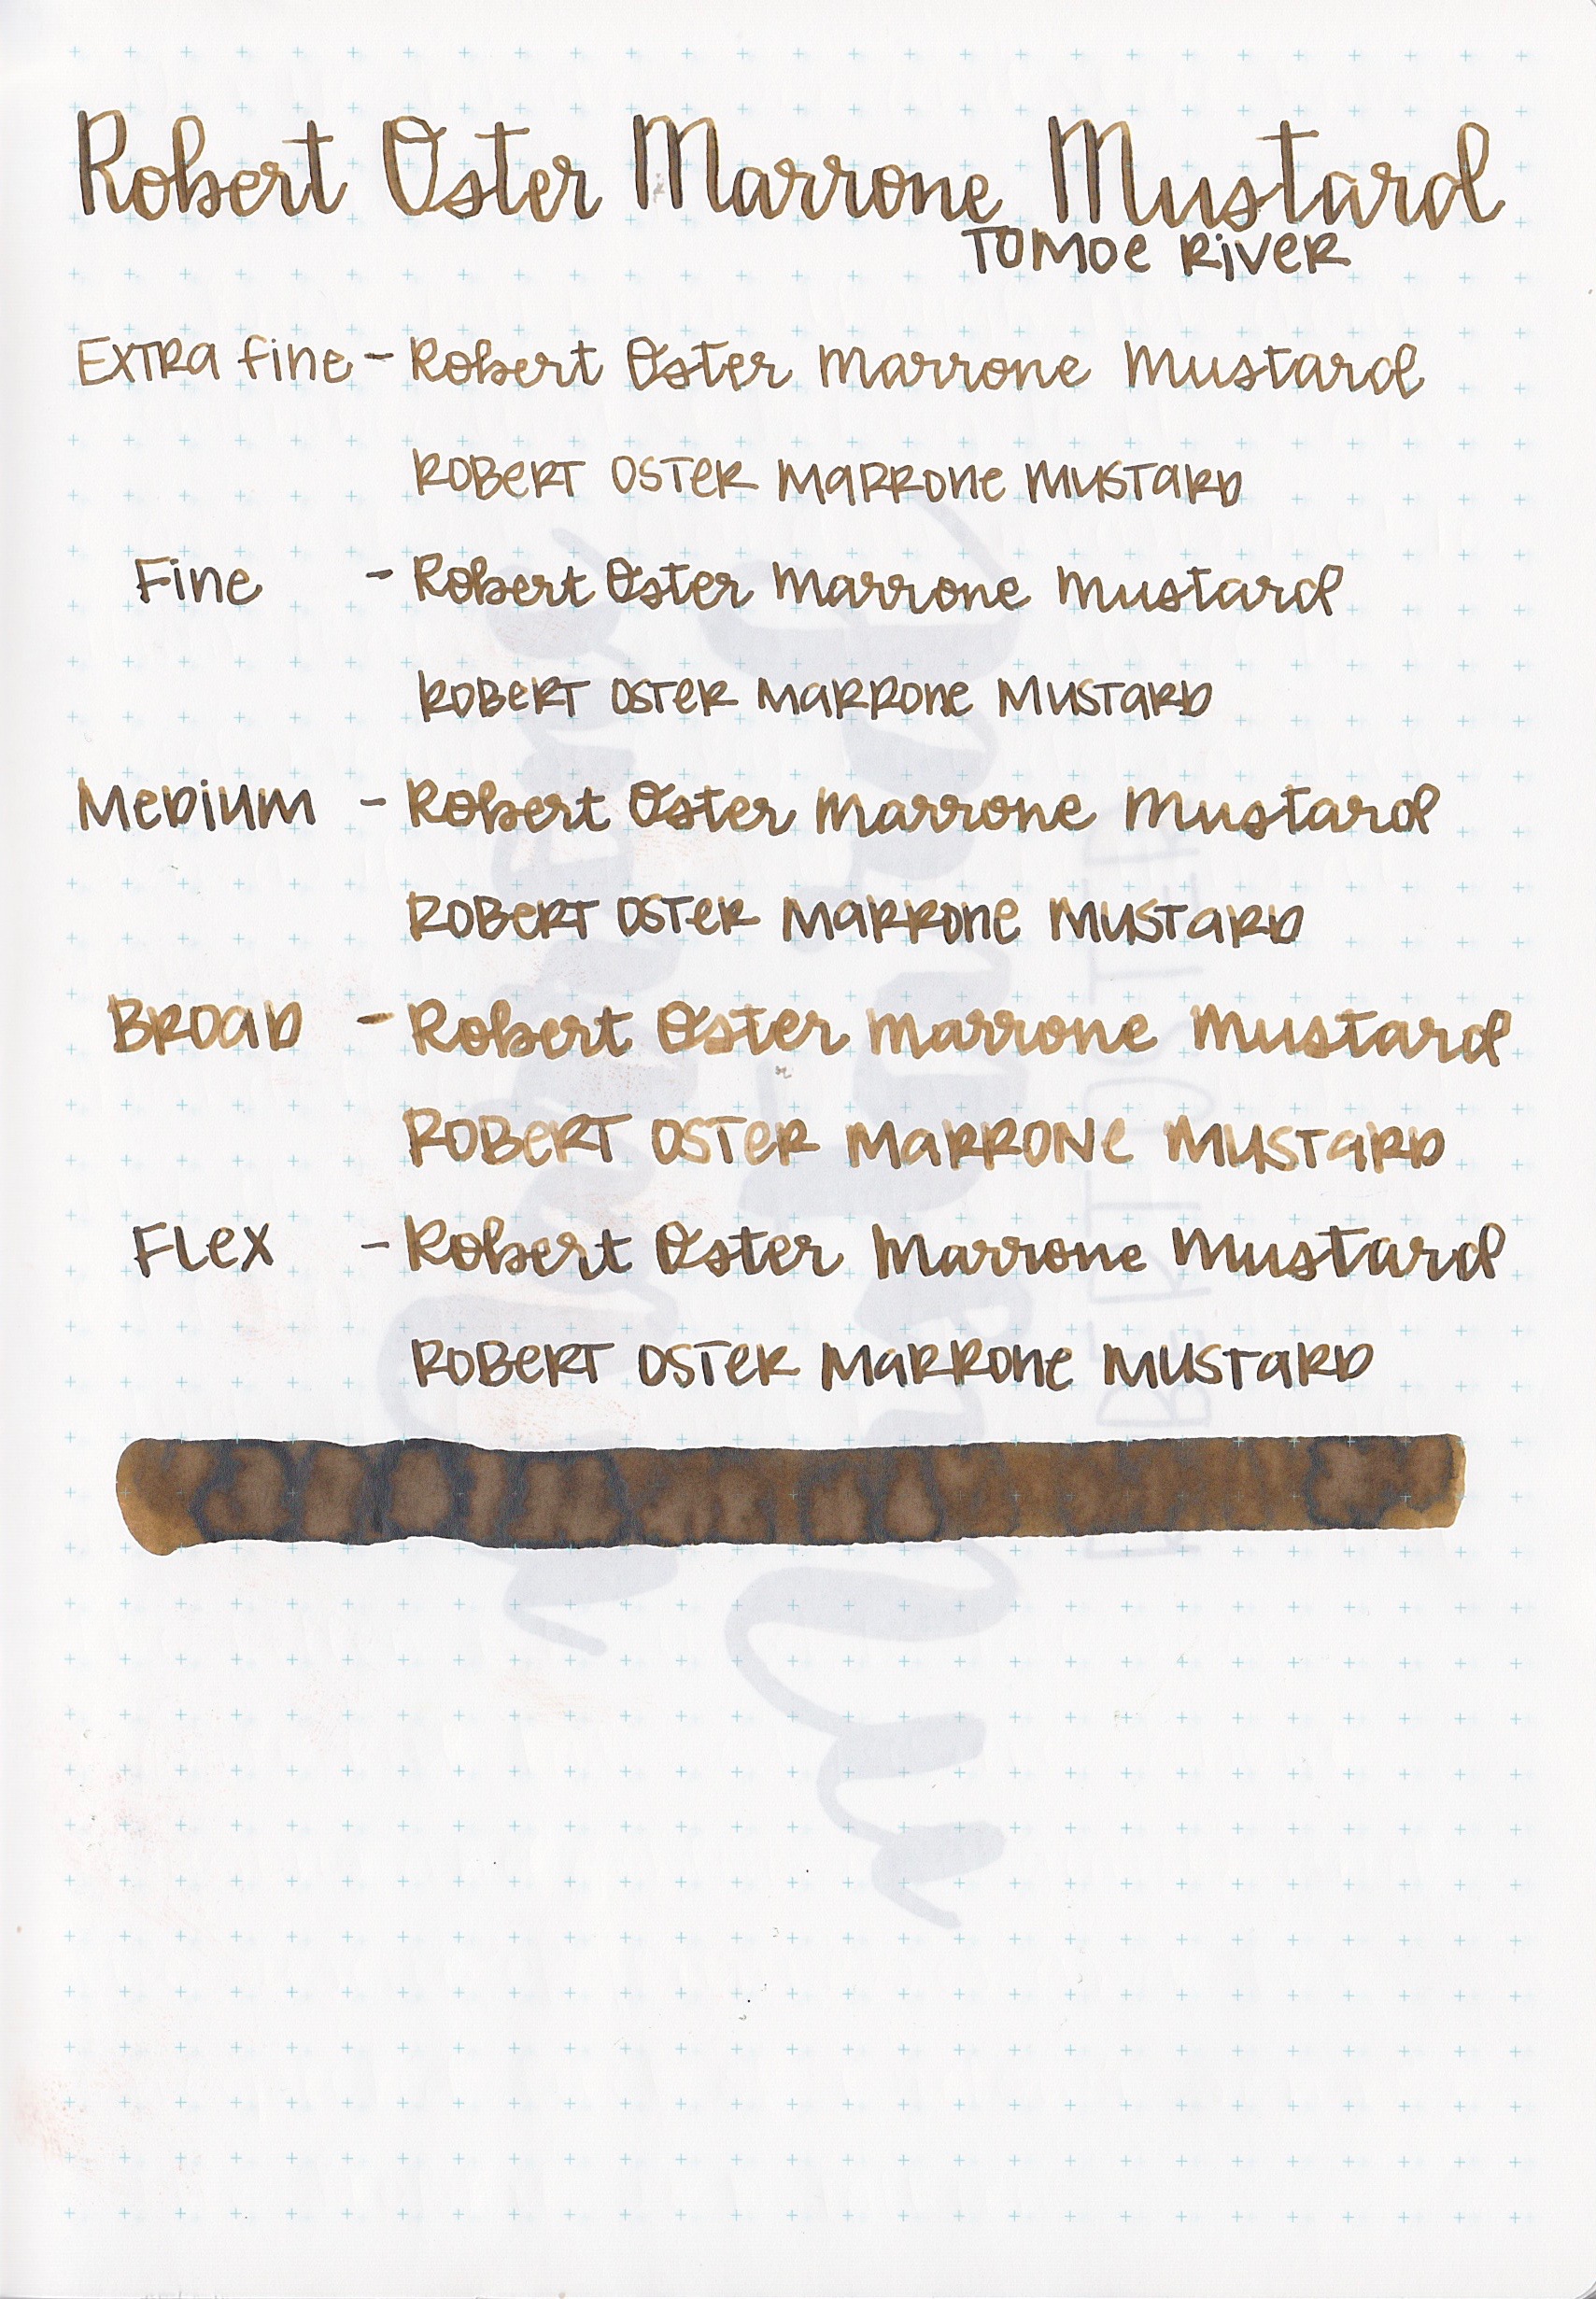 Robert Oster Marrone Mustard
TOMOE RIVER
EXTRA fine - Robert Oster Marrone Mustard
ROBERT OSTER MARRONE MUSTARD
Fine - Robert Oster Marrone Mustard
ROBERT OSTER MARRONE MUSTARD
MEDIUM - Robert Oster Marrone Mustard
ROBERT OSTER MARRONE MUSTARD
BROAD - Robert Oster Marrone Mustard
ROBERT OSTER MARRONE MUSTARD
FLEX - Robert Oster Marrone Mustard
ROBERT OSTER MARRONE MUSTARD